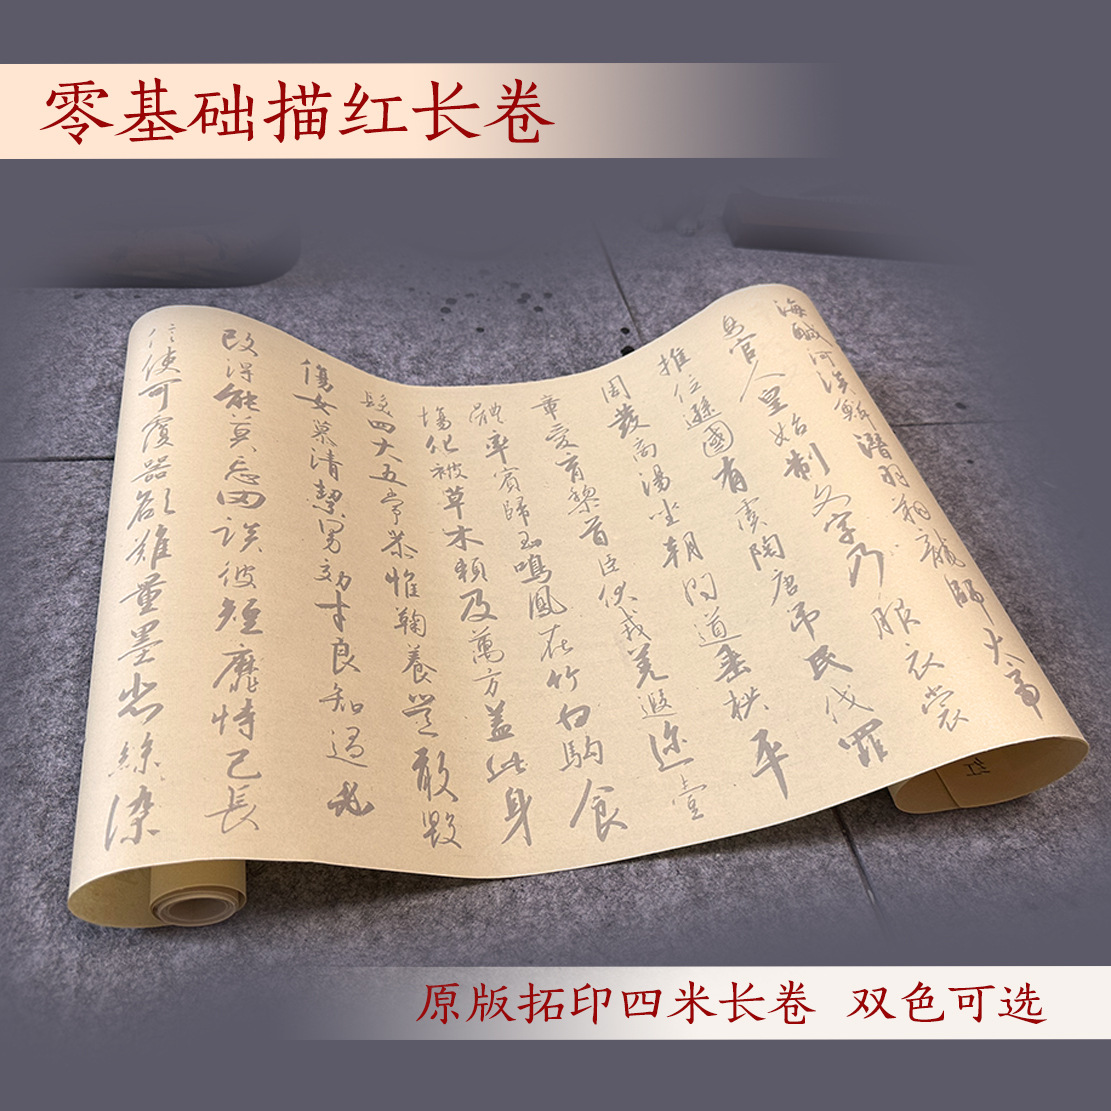 零基础描红长卷
海鹹河淡鱗潛羽翔龍師火帝
鳥官人皇始制文字乃服衣裳
推位遜國有虞陶唐弔民伐罪
周發商湯坐朝問道垂拱平
章愛育黎首臣伏戎羌遐迩壹
體率賓歸王鳴鳳在竹白駒食
場化被草木賴及萬方蓋此身
髮四大五常恭惟鞠養豈敢毀
傷女慕清絜男効才良知過必
改得能莫忘罔談彼短靡恃己長
信使可覆器欲難量墨悲絲染
红
原版拓印四米长卷 双色可选